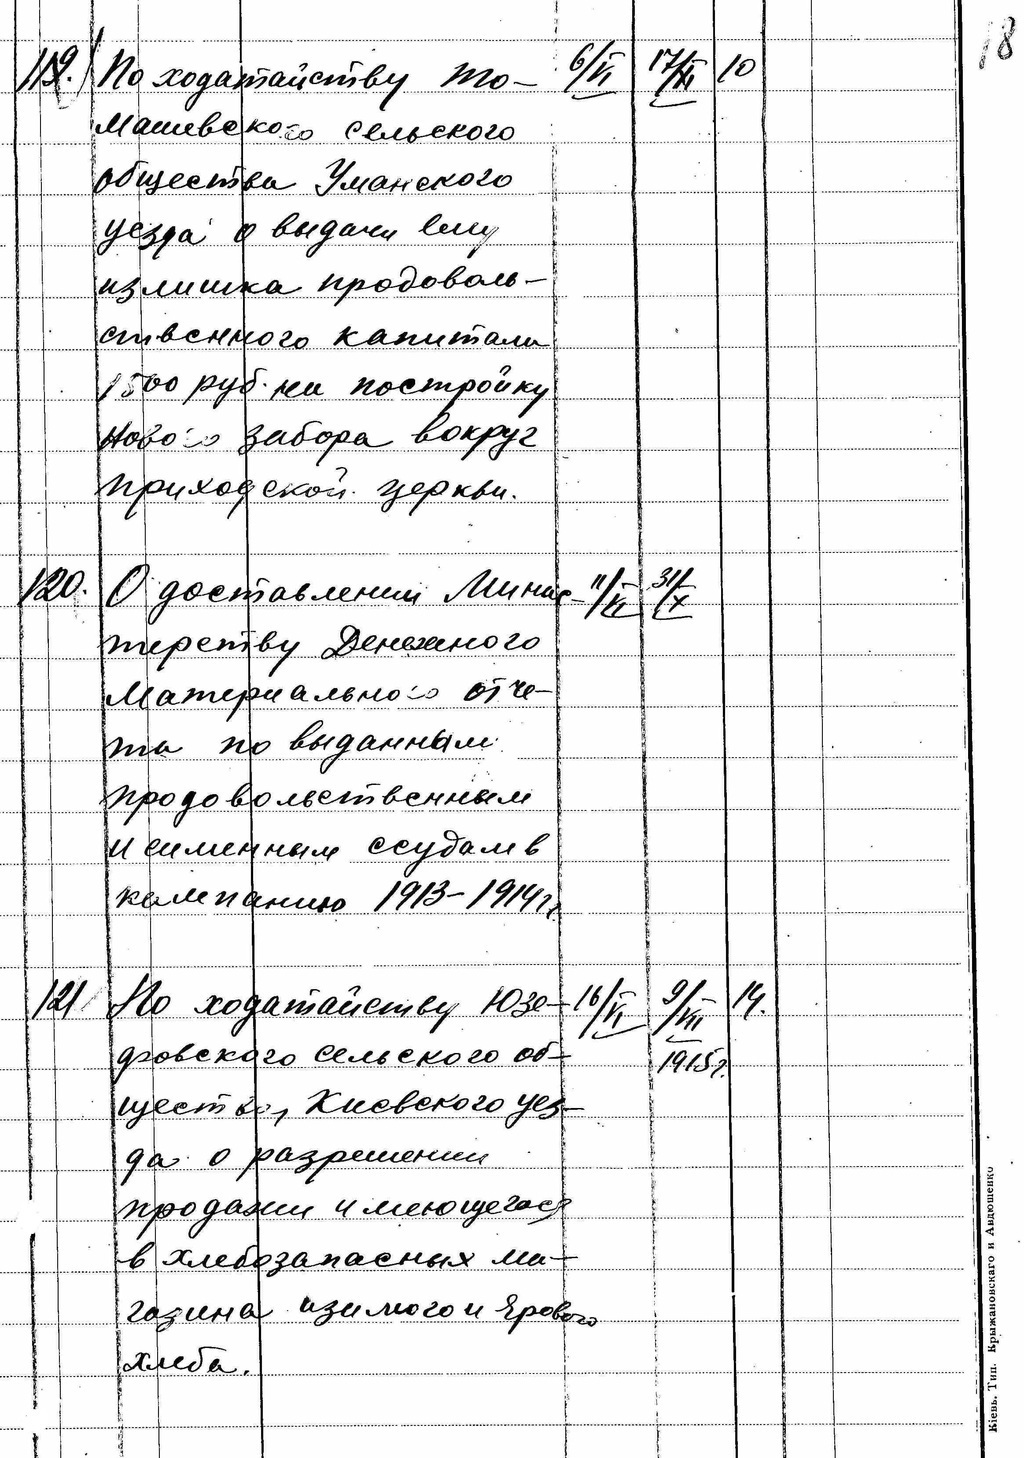 18
119. По ходатайству То- 6/VI 17/XI 10
машевского сельского
общества Уманского
уезда о выдачи ему
излишка продоволь-
ственного капитала
1500 руб. на постройку
нового забора вокруг
приходской церкви.
120. О доставлении Минис- 11/VI 31/X
терству Денежного
Материального отче-
та по выданным
продовольственным
и семенным ссудам в
кампанию 1913-1914 гг.
121 По ходатайству Юзе- 16/VI 9/III 14.
фовского сельского об- 1915 г.
щества, Киевского уез-
да о разрешении
продажи имеющегося
в хлебозапасных ма-
газина озимого и Ярового
хлеба.
Кіевъ. Тип. Крыжановскаго и Авдюшенко